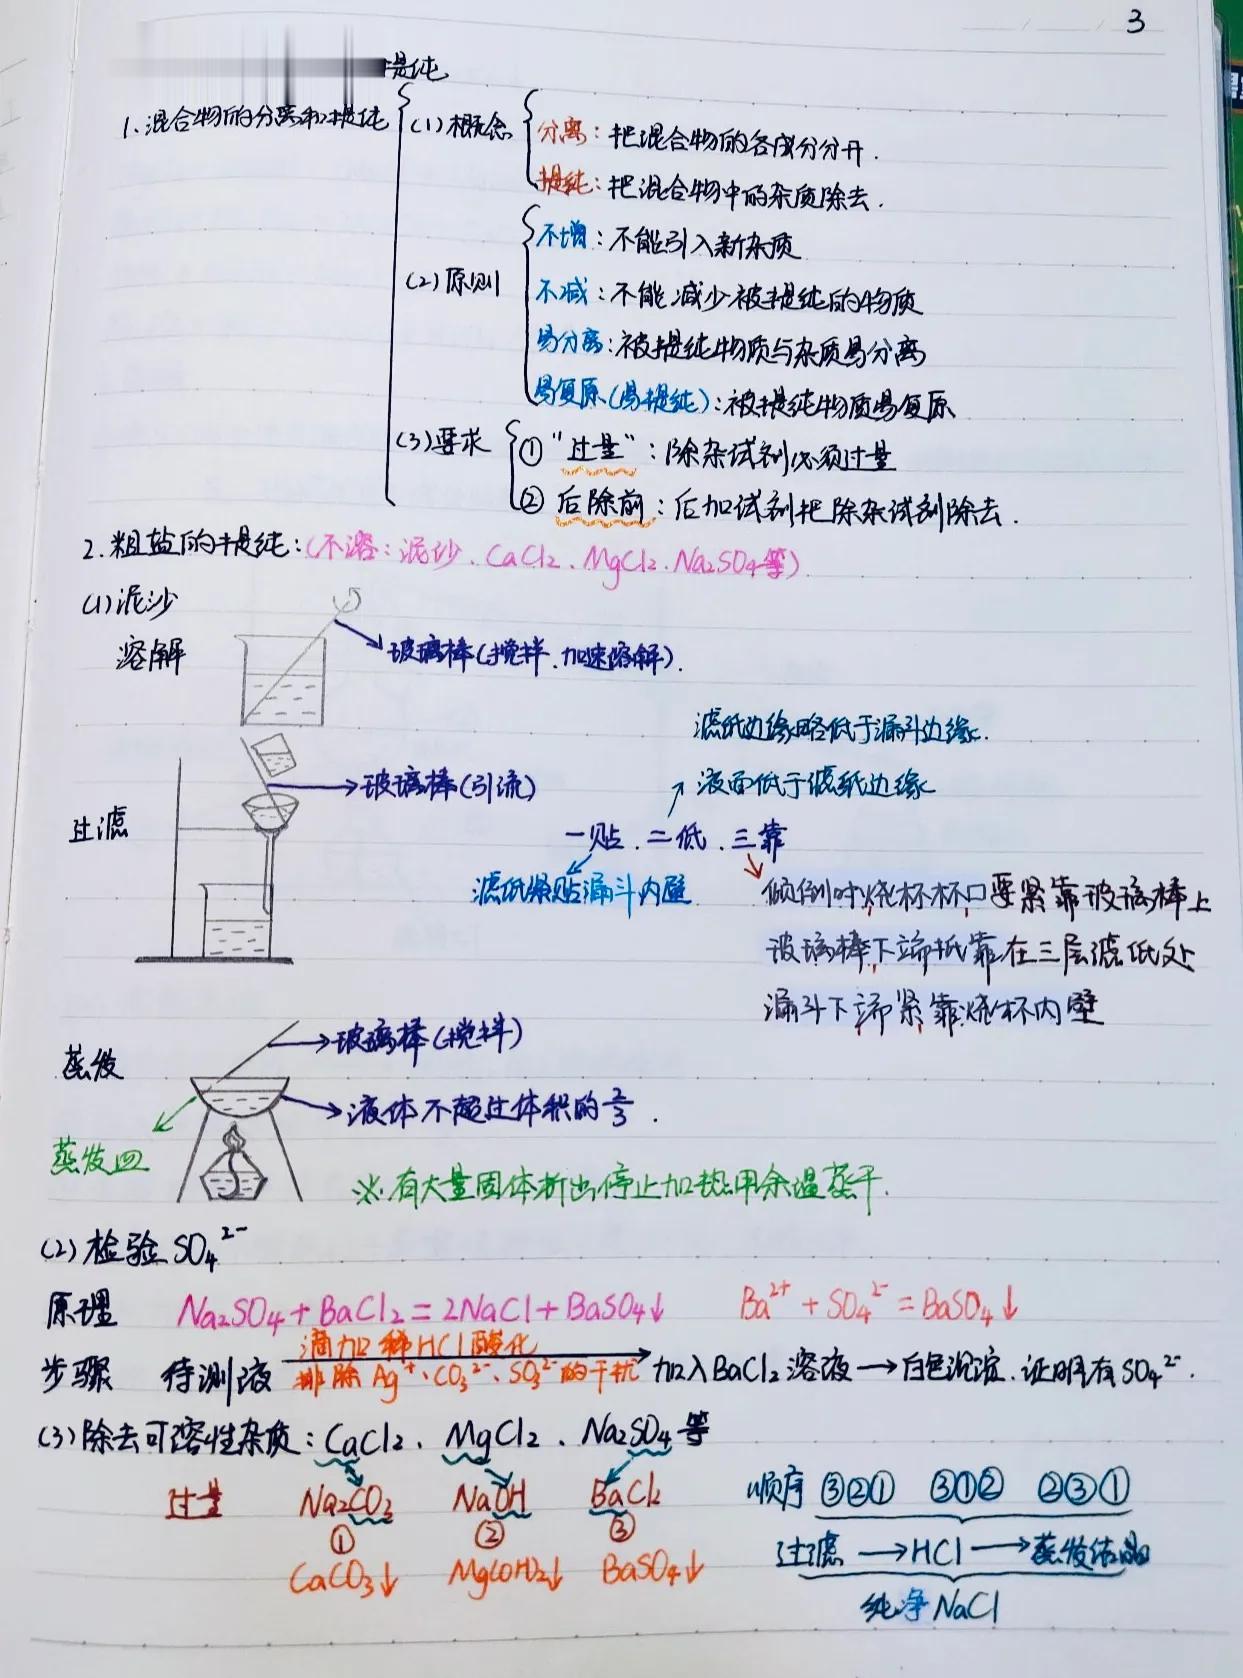 3
提纯
1.混合物的分离和提纯
(1)概念
分离:把混合物的各成分分开.
提纯:把混合物中的杂质除去.
(2)原则
不增:不能引入新杂质
不减:不能减少被提纯的物质
易分离:被提纯物质与杂质易分离
易复原(易提纯):被提纯物质易复原
(3)要求
①"过量":除杂试剂必须过量
②后除前:后加试剂把除杂试剂除去.
2.粗盐的提纯:(不溶:泥沙、CaCl2、MgCl2、Na2SO4等)
(1)泥沙
溶解
玻璃棒(搅拌、加速溶解).
滤纸边缘略低于漏斗边缘.
玻璃棒(引流)
液面低于滤纸边缘
过滤
一贴、二低、三靠
滤纸紧贴漏斗内壁
倾倒时烧杯杯口要紧靠玻璃棒上
玻璃棒下端抵靠在三层滤纸处
漏斗下端紧靠烧杯内壁
蒸发
玻璃棒(搅拌)
液体不超过体积的2/3.
蒸发皿
※有大量固体析出停止加热用余温蒸干.
(2)检验SO₄²⁻
原理 Na2SO4+BaCl2=2NaCl+BaSO4↓ Ba²⁺+SO₄²⁻=BaSO4↓
步骤 待测液 滴加稀HCl酸化 排除Ag⁺、CO₃²⁻、SO₃²⁻的干扰 加入BaCl2溶液→白色沉淀.证明有SO₄²⁻.
(3)除去可溶性杂质:CaCl2、MgCl2、Na2SO4等
过量 Na2CO3 NaOH BaCl2 顺序 ③②① ③①② ②③①
① ② ③
过滤→HCl→蒸发结晶
CaCO3↓ Mg(OH)2↓ BaSO4↓
纯净NaCl